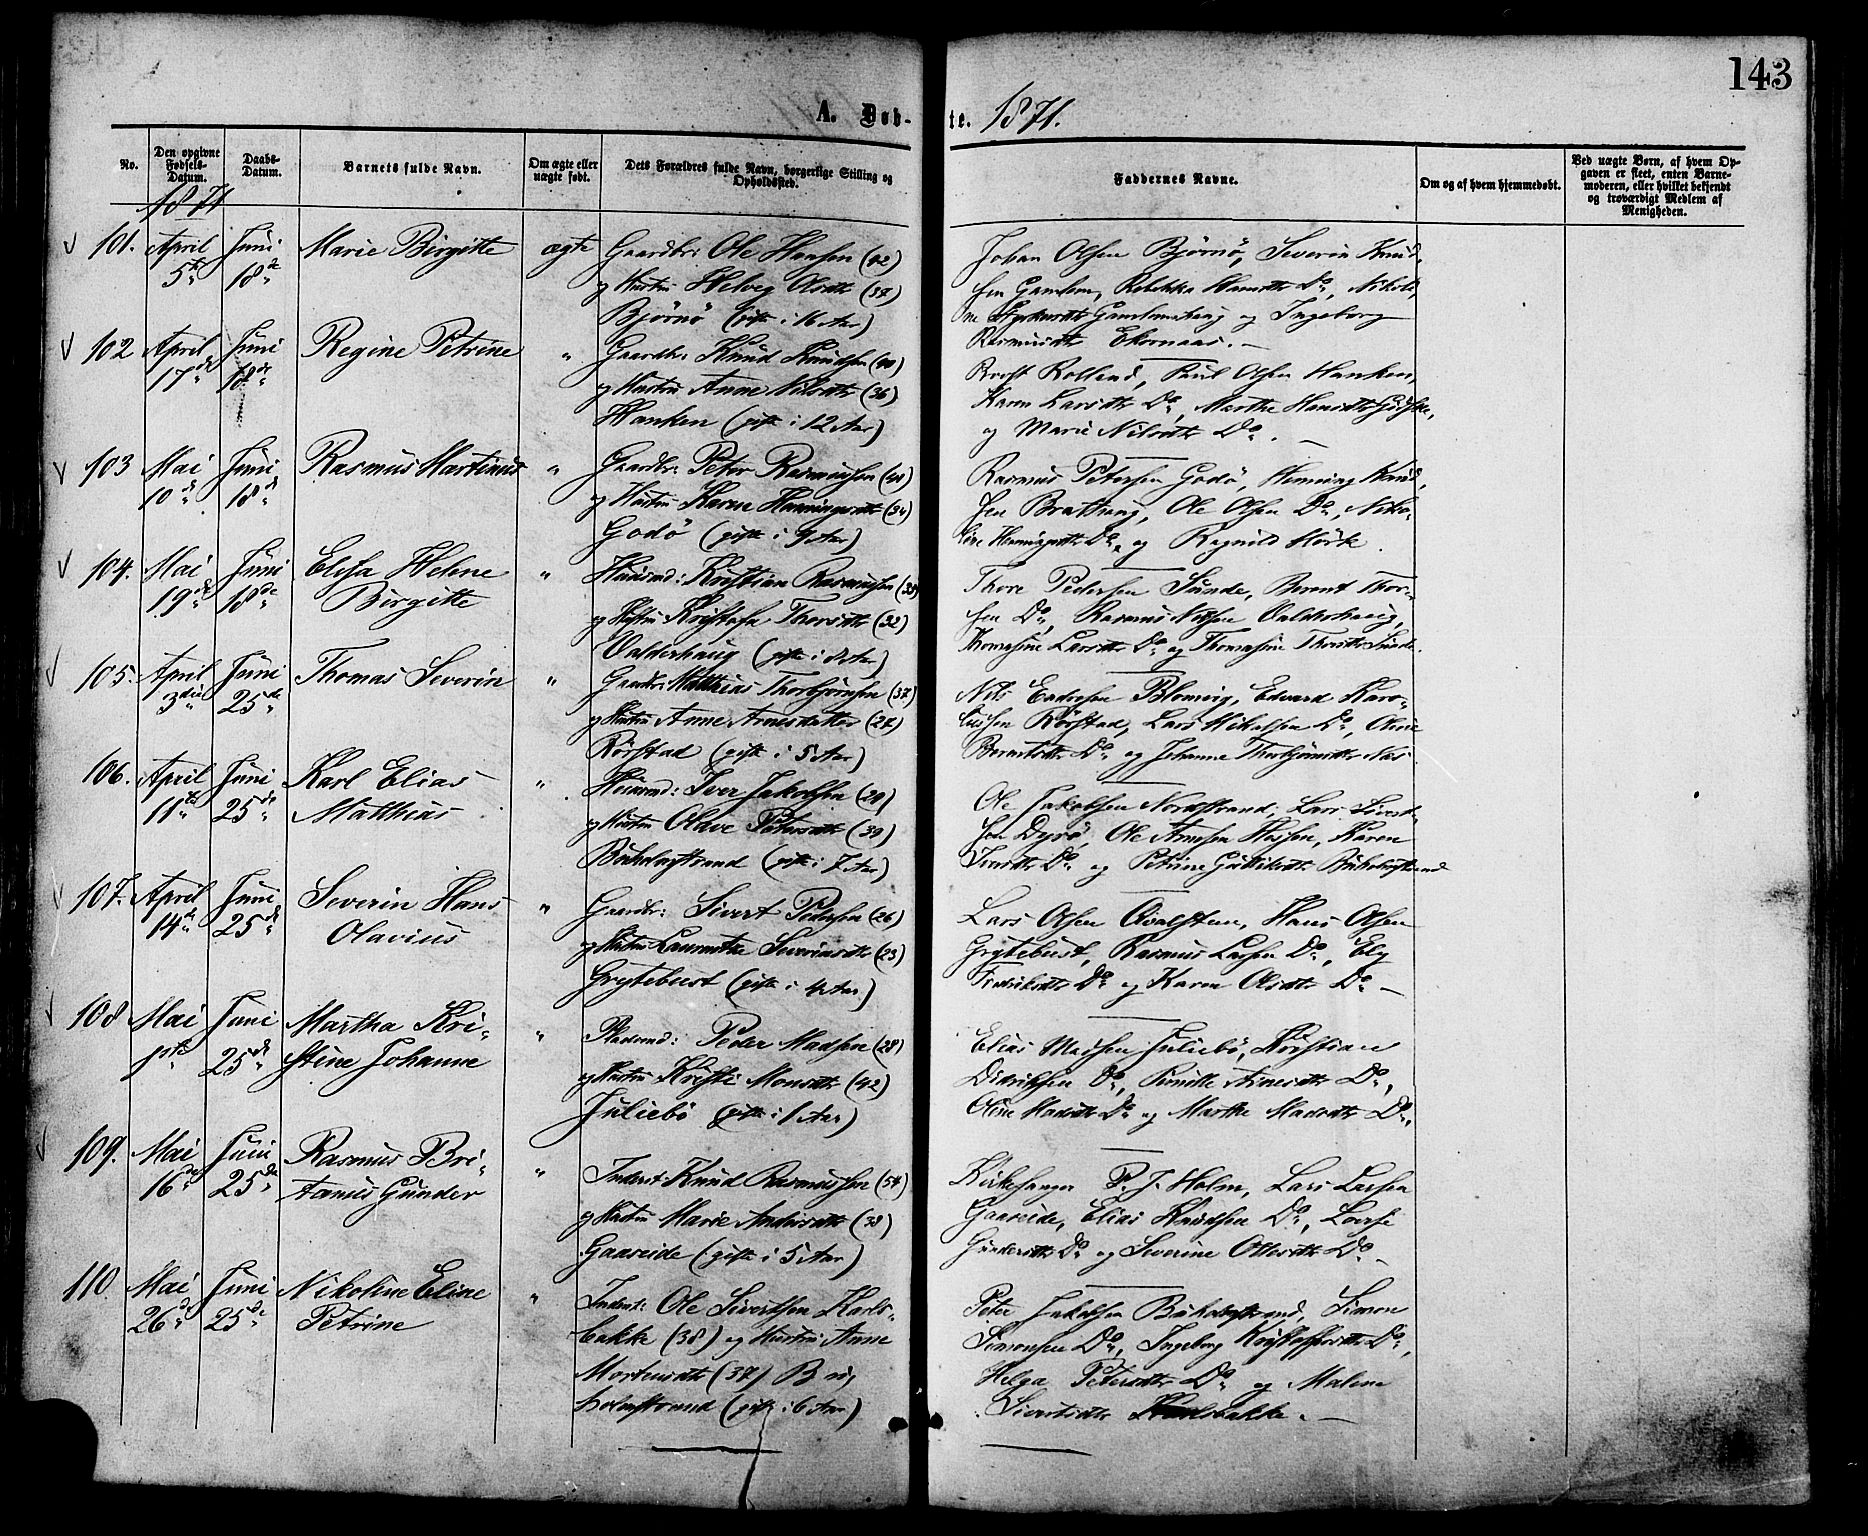 143
A. Døb-
te. 1871.
No.
Den opgivne Fødsels-Datum.
Daabs-Datum.
Barnets fulde Navn.
Om ægte eller uægte født.
Dets Forældres fulde Navn, borgerlige Stilling og Opholdssted.
Faddernes Navne.
Om og af hvem hjemmedøbt.
Ved uægte Børn, af hvem Opgaven er skeet, enten Barnemoderen, eller hvilket bekjendt og troværdigt Medlem af Menigheden.
1871
101. April Juni Marie Birgitte ægte Gaardbr: Ole Hansen (42)
5te 18de og Hustru Helveg Olsdtr (38)
Bjørnø (gifte i 16 Aar)
Johan Olsen Bjørnø, Severin Knud,
sen Gamlem, Rebekka Hansdtr Do, Nikoli,
ne Gamlemshaug og Ingeborg
Rasmusdtr Ekornaas. —
102 April Juni Regine Petrine " Gaardbr: Knud Knudsen (40)
17de 18de og Hustru Anne Nilsdtr (36)
Hanken (gifte i 12 Aar)
Rolland, Paul Olsen Hanken,
Karen Larsdtr Do, Marthe Hansdtr Giske,
og Marie Nilsdtr Do. —
103 Mai Juni Rasmus Martinus " Gaardbr: Peter Rasmussen (40)
10de 18de og Hustru Karen Henningsdtr (34)
Godø (gifte i 9 Aar)
Rasmus Petersen Godø, Henning Knud,
sen Brathaug, Ole Olsen Do, Niko-
line Henningsdtr Do, og Ragnild Hørke.
104. Mai Juni Elisa Helene " Huusmd: Kristian Rasmussen (38)
19de 18de Birgitte og Hustru Kristofa Thoresdtr (32)
Valderhaug (gifte i 8 Aar)
Thore Pedersen Sunde, Berent Thor-
sen Do, Rasmus Nilsen Valderhaug,
Thomasine Larsdtr Do og Thomasine Thoresdtr Sunde.
105. April Juni Thomas Severin " Gaardbr: Matthias Thorbjørnsen (37)
3die 25de og Hustru Anne Arnesdatter (27)
Rørstad (gifte i 5 Aar)
Nils Blomvig, Edvard Karo-
liussen Rørstad, Lars Mikalsen Do, Oline
Berentsdtr Do og Johanne Thorbjørnsdtr Næs
106. April Juni Karl Elias " Huusmd: Iver Jakobsen (29)
11te 25de Matthias og Hustru Olave Petersdtr (39)
Buholmstrand (gifte i 7 Aar)
Ole Jakobsen Nordstrand, Lars Sivert-
sen Dyrø, Ole Arnesen Hessen, Karen
Do og Petrine Buholmstrand
107. April Juni Severin Hans " Gaardbr: Sivert Pedersen (26)
14de 25de Olavius og Hustru Laurentse Severinsdtr (23)
Grytebust (gifte i 4 Aar)
Lars Olsen Qvalsteen, Hans Olsen
Grytebust, Rasmus Larsen Do, Ely
Fredriksdtr Do og Karen Olsdtr Do —
108 Mai Juni Martha Kri- " Pladsmd: Peder Madsen (28)
1ste 25de stine Johanne og Hustru Kristi Monsdtr (42)
Juliebø (gifte i 1 Aar)
Elias Madsen Juliebø, Kristian
Didriksen Do, Pernille Arnesdtr Do,
Oline Madsdtr Do og Marthe Madsdtr Do.
109. Mai Juni Rasmus Bri- " Inderst Knud Rasmussen (54)
16de 25de tanus Gunder og Hustru Marie Andersdtr (38)
Gaaseide (gifte i 5 Aar)
Kirkesanger P. J. Holm, Lars Larsen
Gaaseide, Elias Knudsen Do, Lovise
Gundersdtr Do og Severine Ottesdtr Do —
110 Mai Juni Nikoline Eline " Inderst: Ole Sivertsen Karls-
26de 25de Petrine bakke (38) og Hustru Anne
Mortensdtr (37) Bu,
holmstrand (gifte i 6 Aar)
Peter Jakobsen Buholmstrand, Simon
Simonsen Do, Ingeborg Kristoffersdtr Do,
Helga Petersdtr Do og Malene
Sivertsdtr Karlsbakke. —